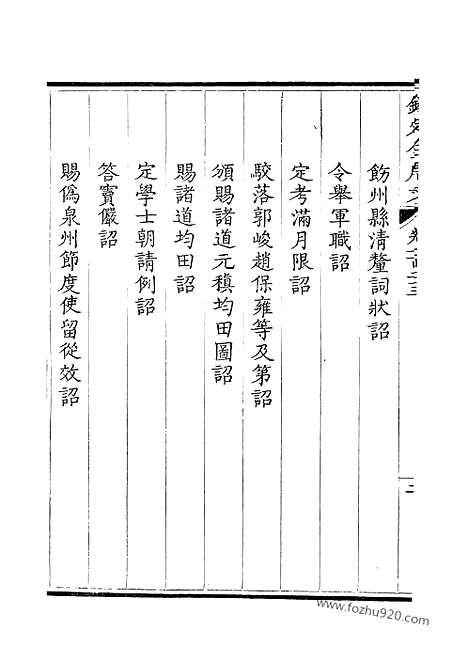 欽定全唐文
飭州縣清釐詞狀詔
令舉軍職詔
定考滿月限詔
駮落郭峻趙保雍等及第詔
頒賜諸道元稹均田圖詔
賜諸道均田詔
定學士朝請例詔
答竇儼詔
賜偽泉州節度使留從效詔
www.fozhu920.com